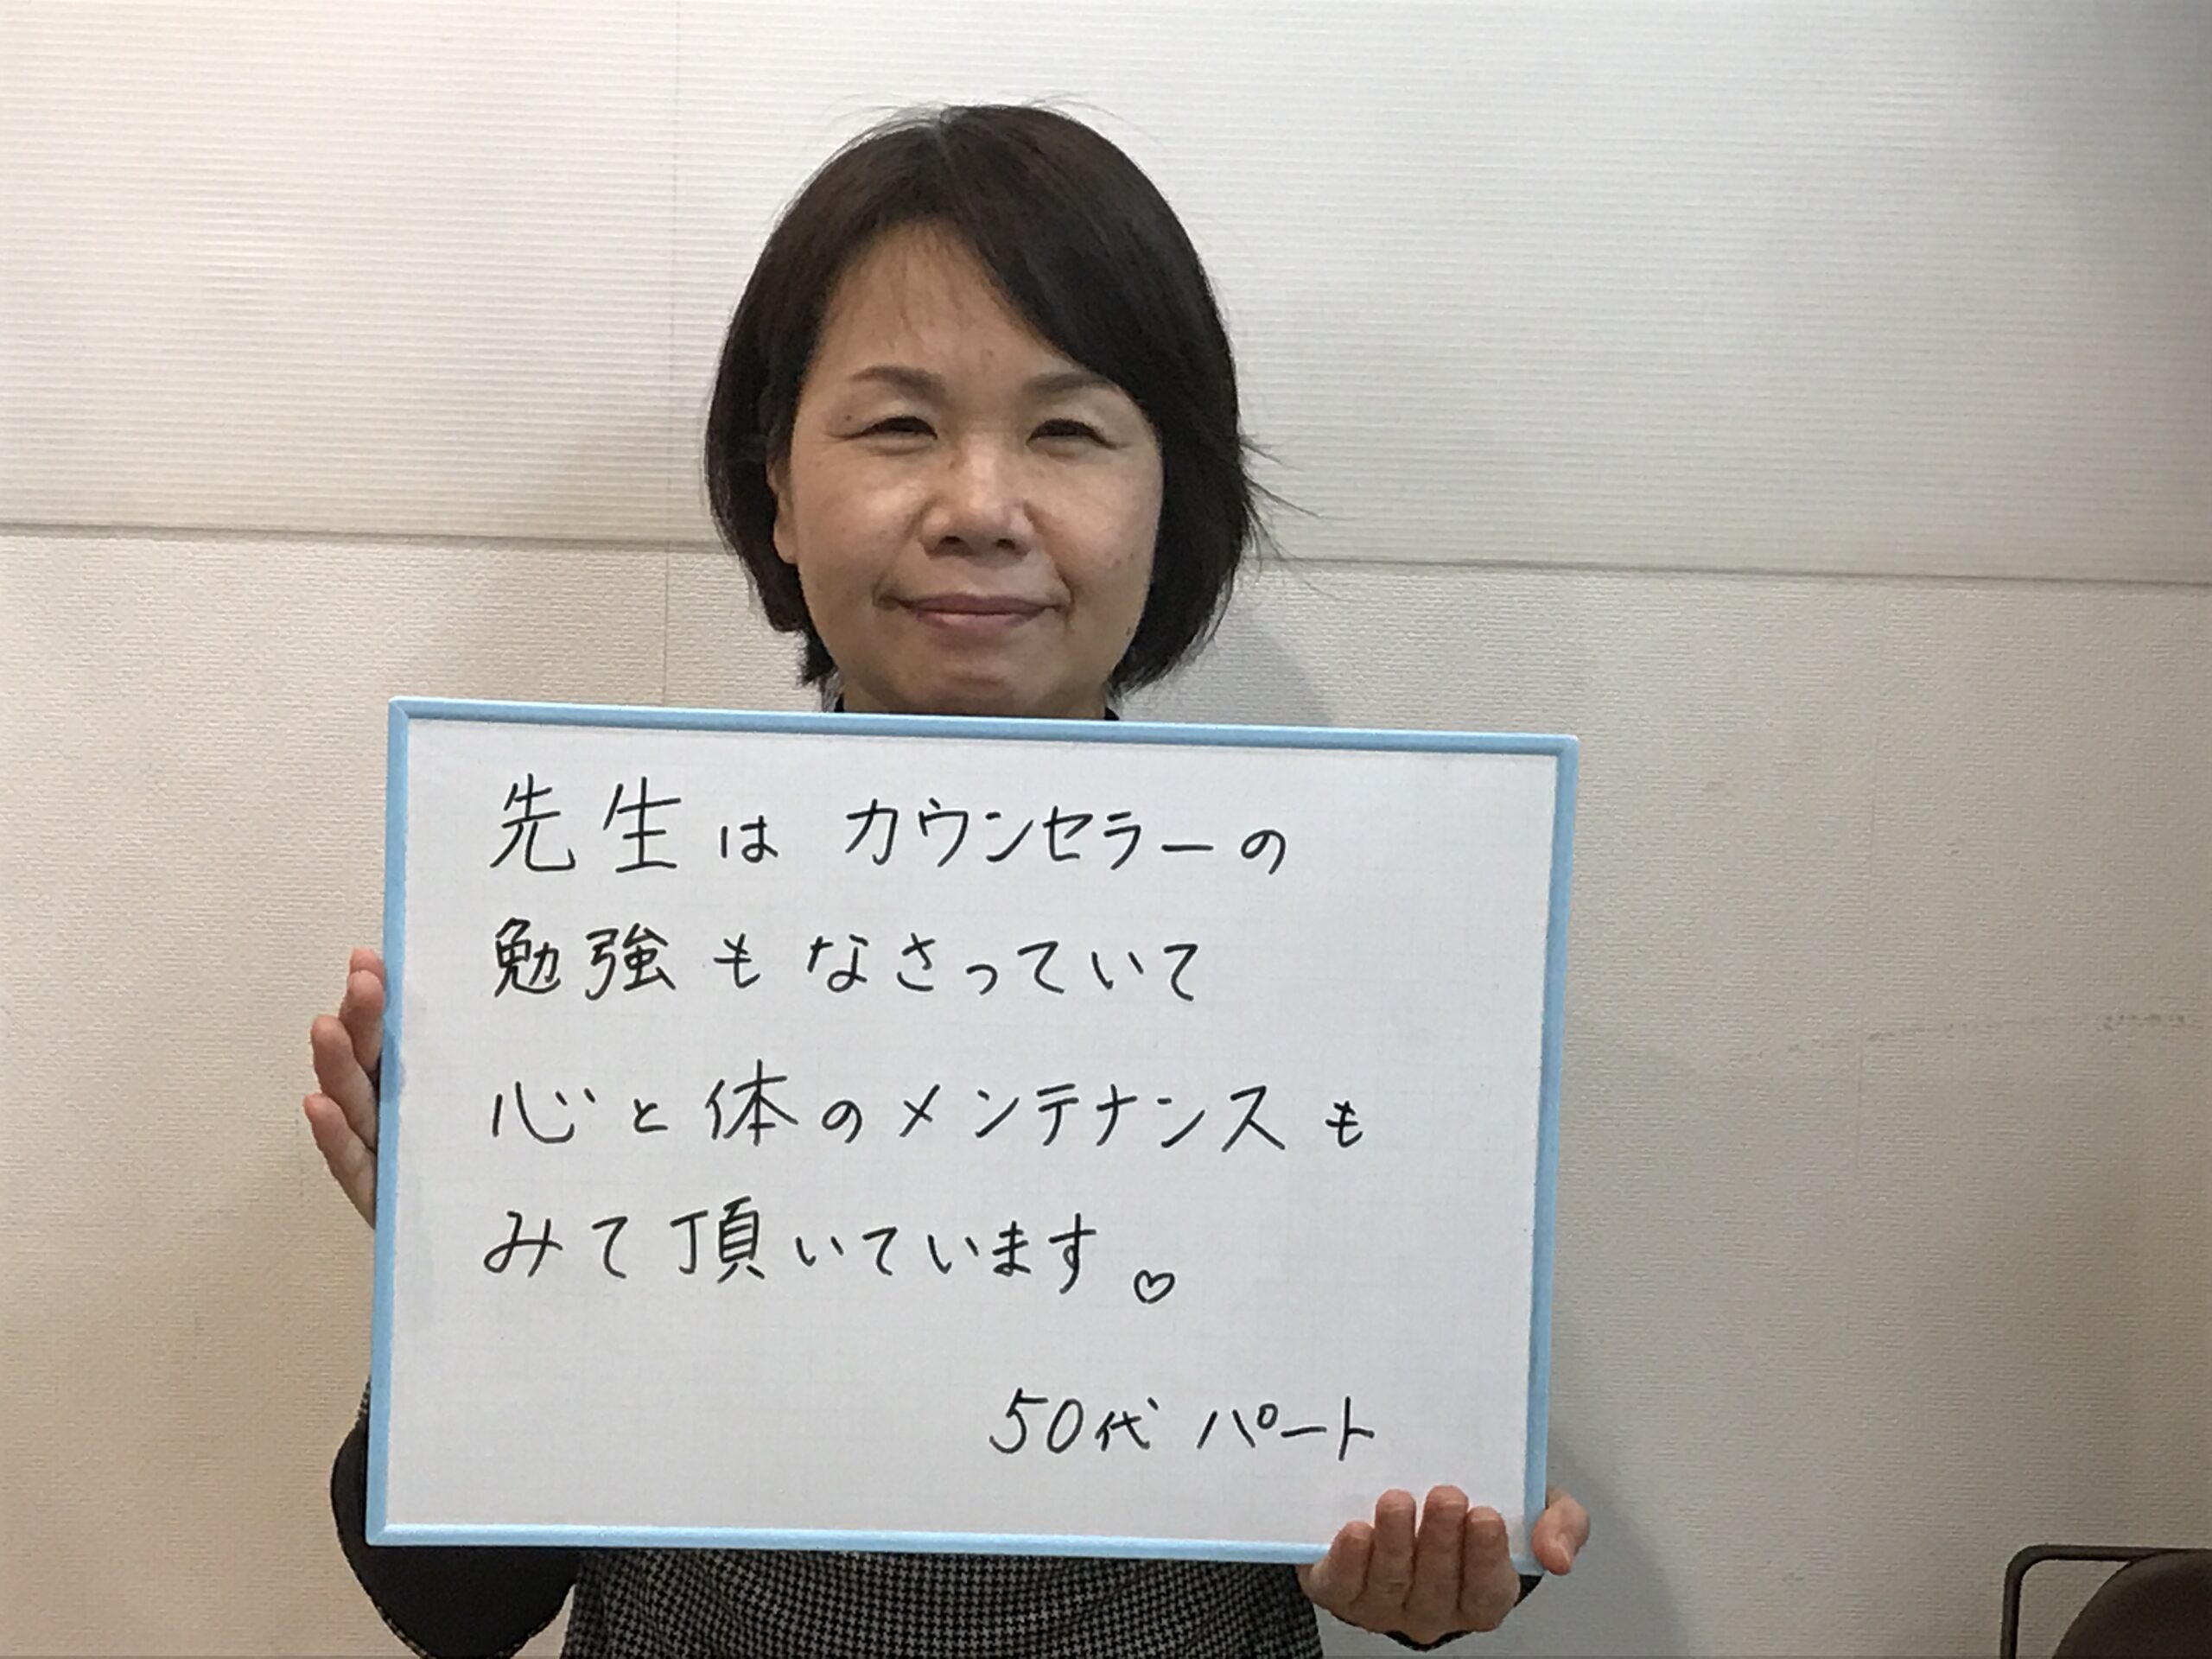 先生は カウンセラーの
勉強もなさっていて
心と体のメンテナンスも
みて頂いています。♡
50代 パート